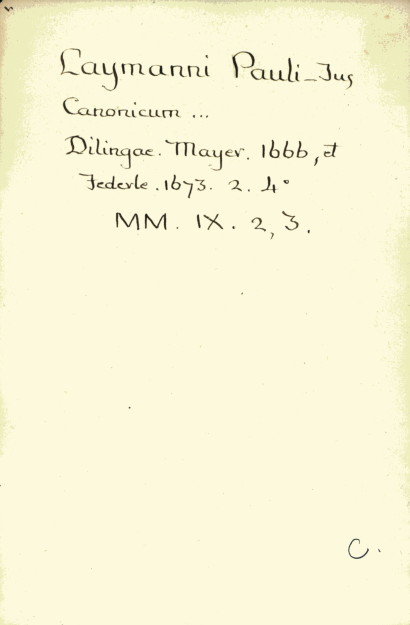 Laymanni Pauli - Jus
Canonicum ...
Dilingae. Mayer. 1666, et
Federle. 1673. 2. 4°
MM. IX. 2, 3.
C.